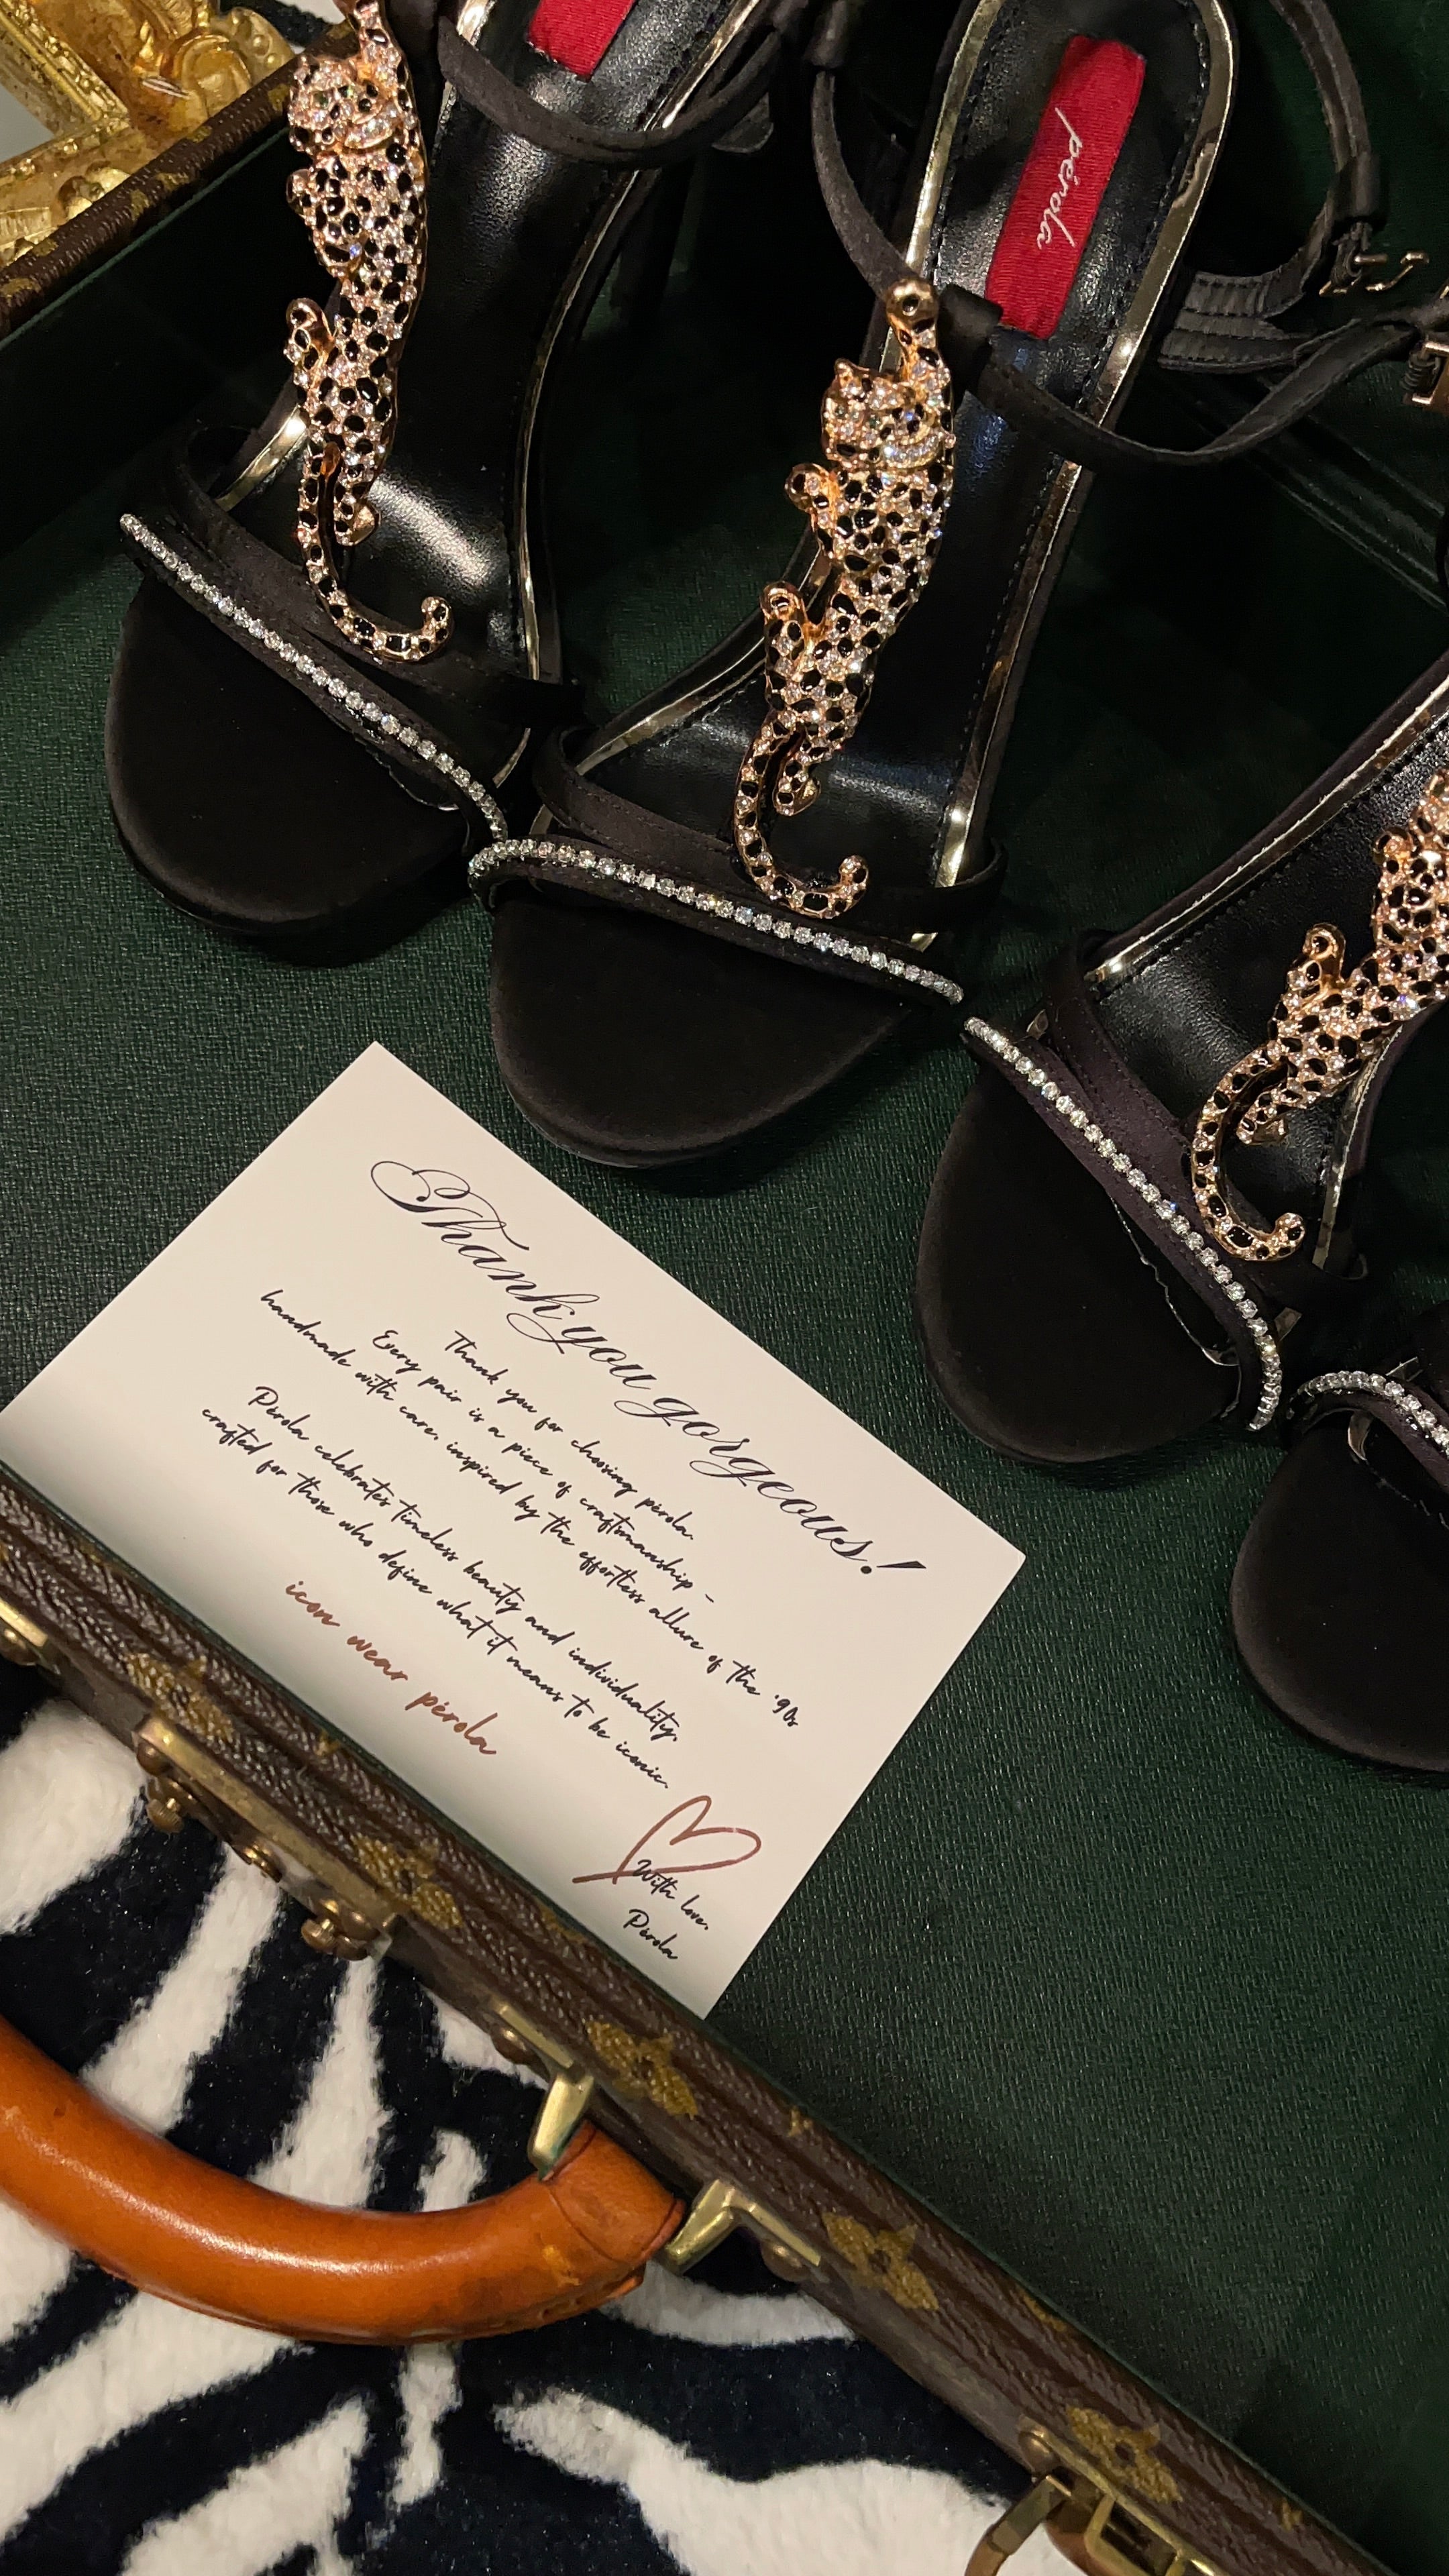 pérola
Thank you gorgeous!
Thank you for choosing pérola.
Every pair is a piece of craftmanship -
handmade with care, inspired by the effortless allure of the '90s
Pérola celebrates timeless beauty and individuality,
crafted for those who define what it means to be iconic.
icon wear pérola
With love,
Pérola